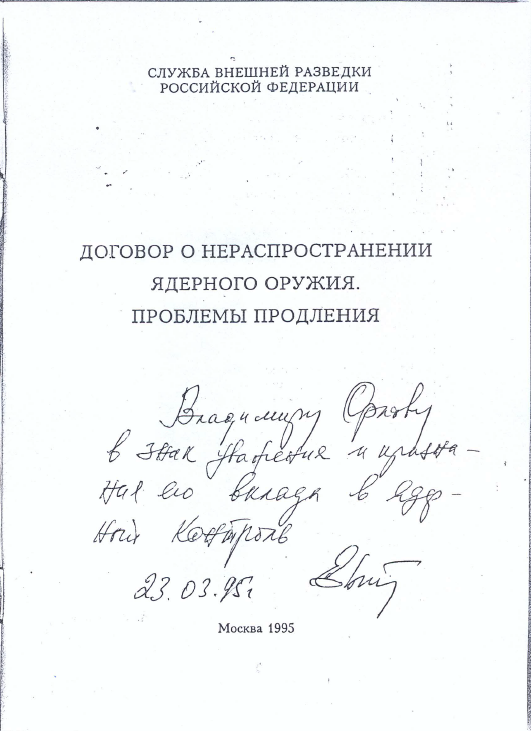 СЛУЖБА ВНЕШНЕЙ РАЗВЕДКИ
РОССИЙСКОЙ ФЕДЕРАЦИИ
ДОГОВОР О НЕРАСПРОСТРАНЕНИИ
ЯДЕРНОГО ОРУЖИЯ.
ПРОБЛЕМЫ ПРОДЛЕНИЯ
Владимиру Орлову
в знак уважения и призна-
ния его вклада в ядер-
ный контроль
23.03.95г
Москва 1995